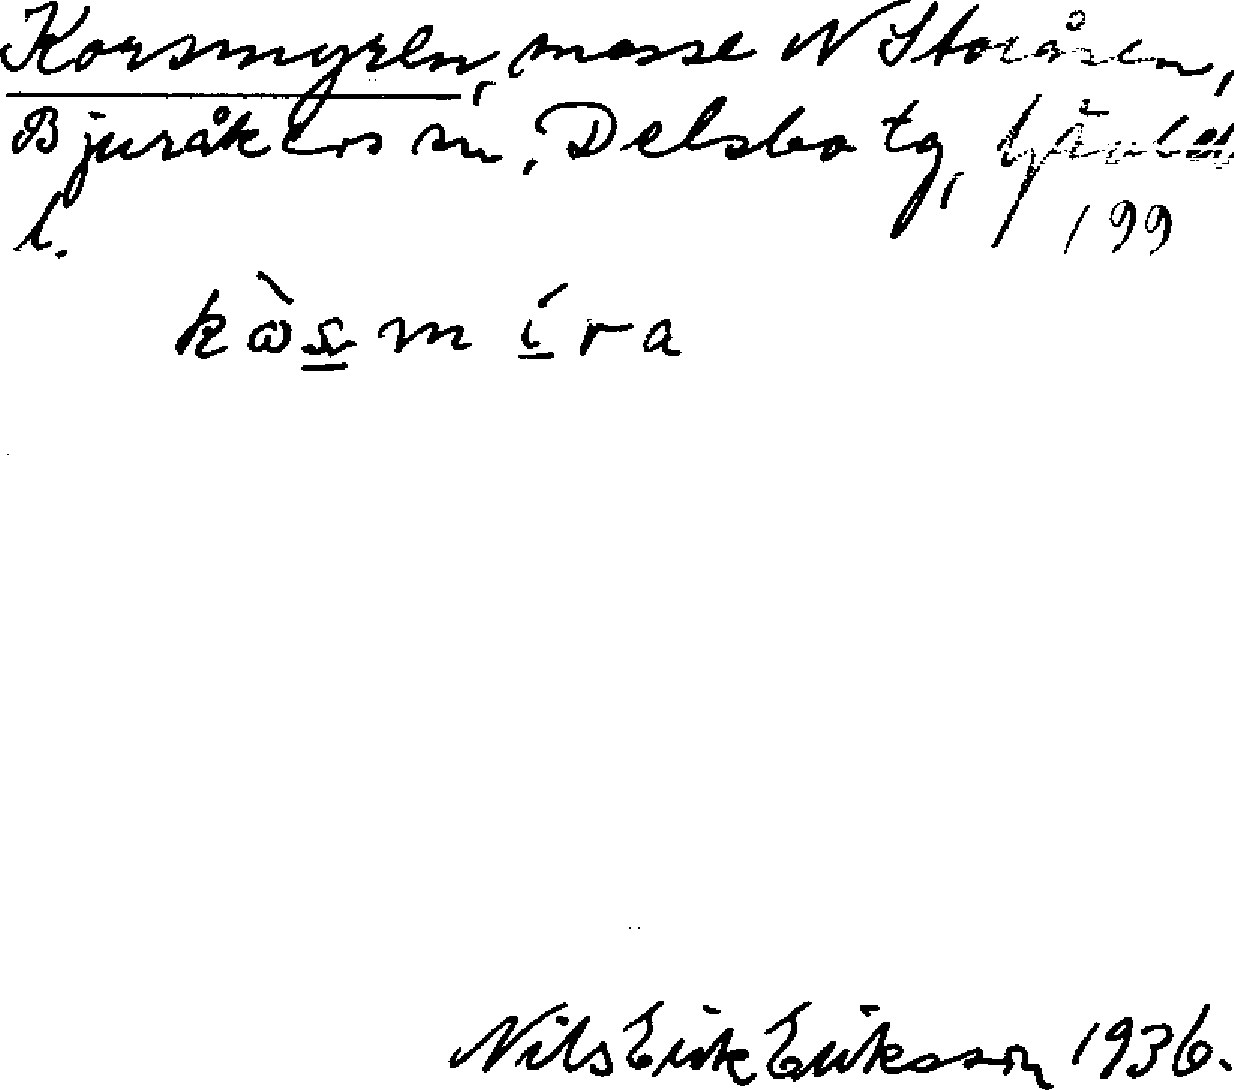 Korsmyren, mosse N Storåsen,
Bjuråkers sn, Delsbo tg, Gävleb.
l. 199
kὼs̲mí̲ra
Nils Erik Eriksson 1936.